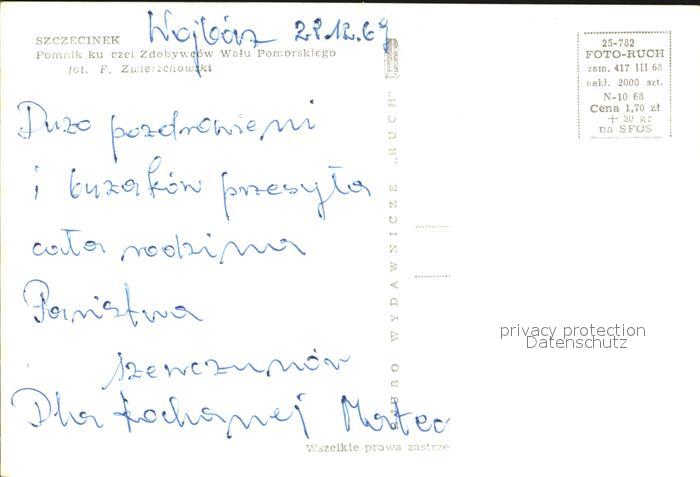 Wojbórz 28.12.69
SZCZECINEK
Pomnik ku czci Zdobywców Wału Pomorskiego
fot. F. Zwierzchowski
25-782
FOTO-RUCH
zam. 417 III 68
nakł. 2000 szt.
N-10 68
Cena 1,70 zł
+ 20 gr
na SFOS
Dużo pozdrowieni
i buzaków przesyła
cała rodzina
Państwa
Szewczunów
Dla kochanej
BIURO WYDAWNICZE „RUCH"
privacy protection
Datenschutz
Wszelkie prawa zastrze